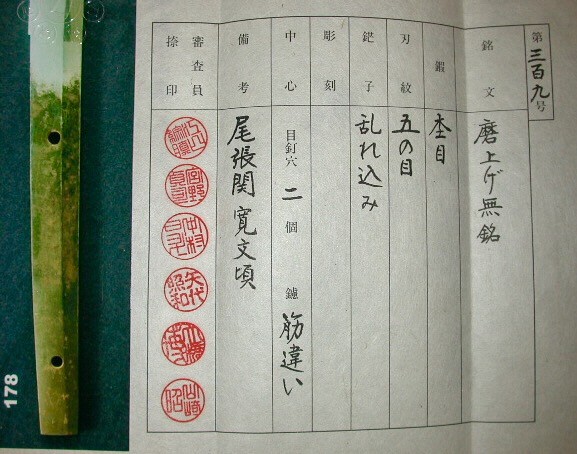 第三百九号
銘文 磨上げ無銘
鍜 杢目
刃紋 五の目
鋩子 乱れ込み
彫刻
中心 目釘穴 二 個 鑢 筋違い
備考 尾張関 寛文頃
審査員捺印
宮野
中村
矢代照和
山崎昭
178